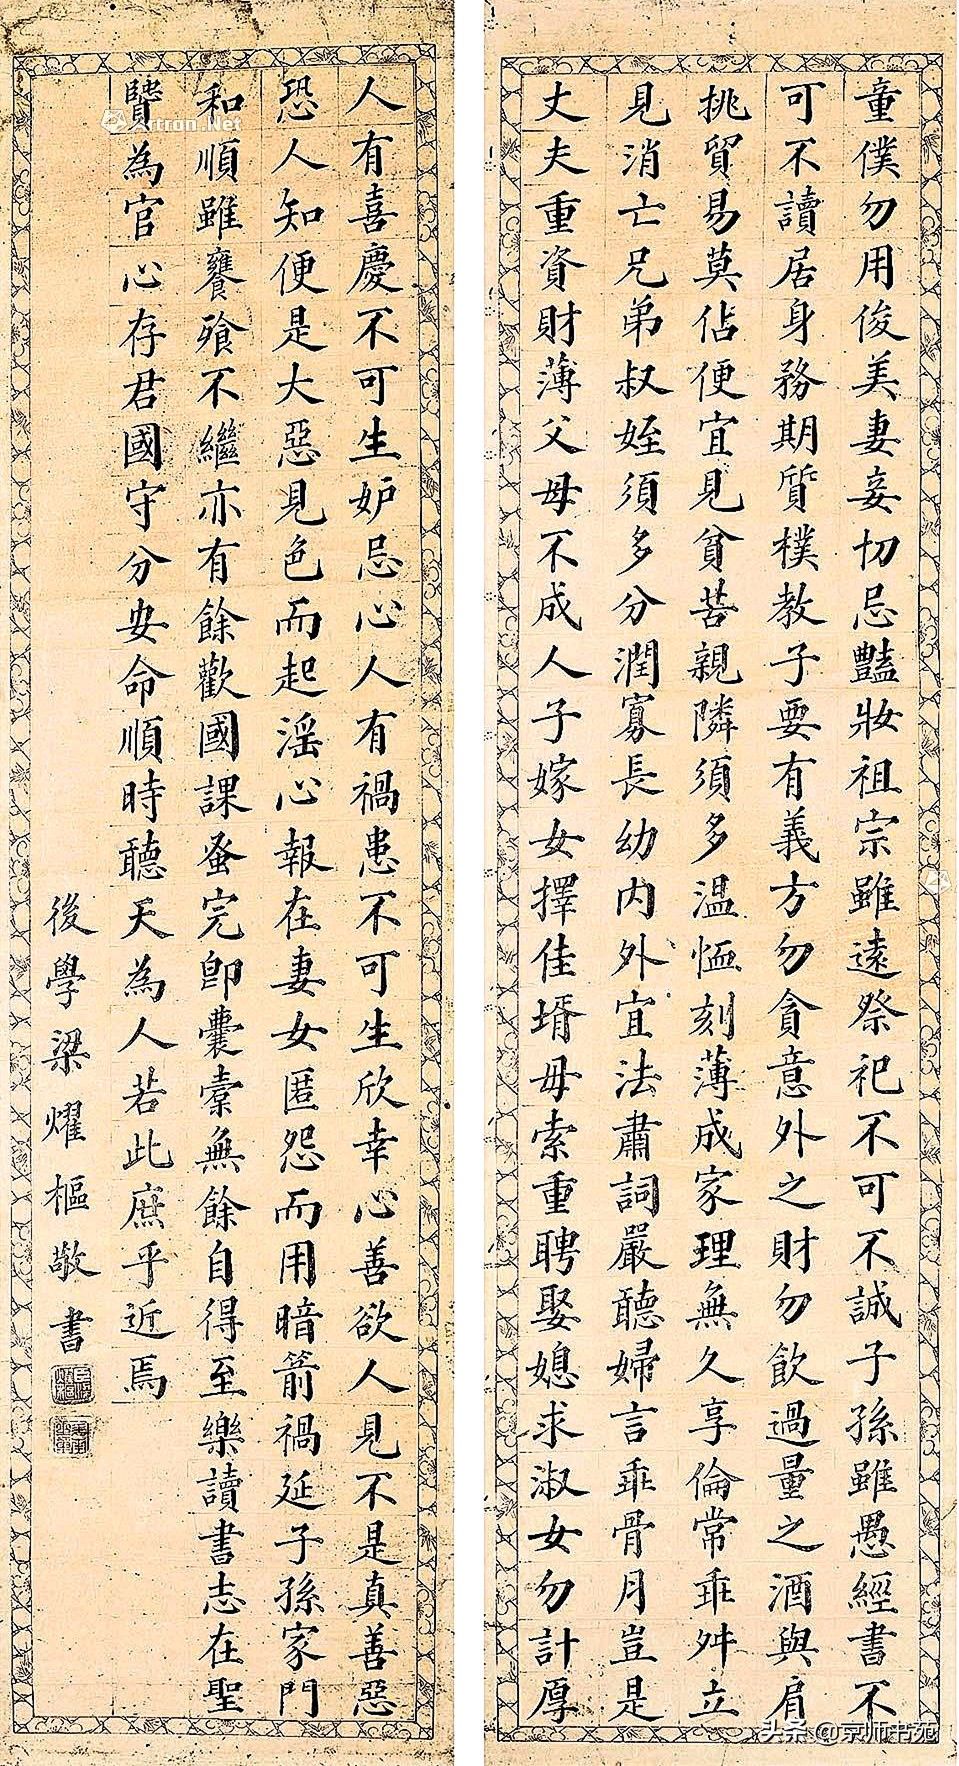 童僕勿用俊美妻妾切忌豔妝祖宗雖遠祭祀不可不誠子孫雖愚經書不
可不讀居身務期質樸教子要有義方勿貪意外之財勿飲過量之酒與肩
挑貿易莫佔便宜見貧苦親隣須多溫恤刻薄成家理無久享倫常乖舛立
見消亡兄弟叔姪須多分潤寡長幼內外宜法肅詞嚴聽婦言乖骨月豈是
丈夫重資財薄父母不成人子嫁女擇佳壻毋索重聘娶媳求淑女勿計厚
人有喜慶不可生妒忌心人有禍患不可生欣幸心善欲人見不是真善惡
恐人知便是大惡見色而起淫心報在妻女匿怨而用暗箭禍延子孫家門
和順雖饔飧不繼亦有餘歡國課蚤完即囊橐無餘自得至樂讀書志在聖
贒為官心存君國守分安命順時聽天為人若此庶乎近焉
後學梁耀樞敬書
Artron.Net
头条 @京师书苑